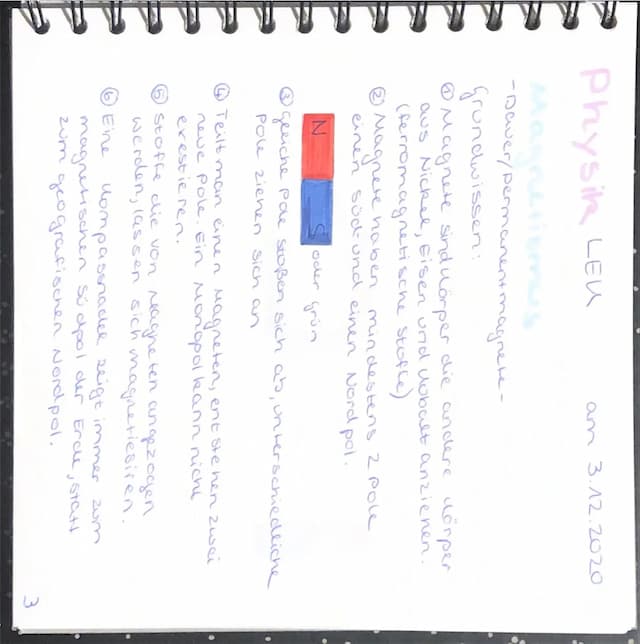 Physik LEK am 3.12.2020
Magnetismus
-Dauer/Permanentmagnete-
Grundwissen:
① Magnete sind Körper die andere Körper
aus Nickel, Eisen und Kobalt anziehen.
(ferromagnetische Stoffe)
② Magnete haben mindestens 2 Pole
einen Süd und einen Nordpol.
N S oder grün
③ gleiche Pole stoßen sich ab, unterschiedliche
Pole ziehen sich an
④ Teilt man einen Magneten, entstehen zwei
neue Pole. Ein Monopol kann nicht
exestieren.
⑤ Stoffe die von Magneten angezogen
werden, lassen sich magnetisieren.
⑥ Eine Kompassnadel zeigt immer zum
magnetischen Südpol der Erde, statt
zum geografischen Nordpol.
3